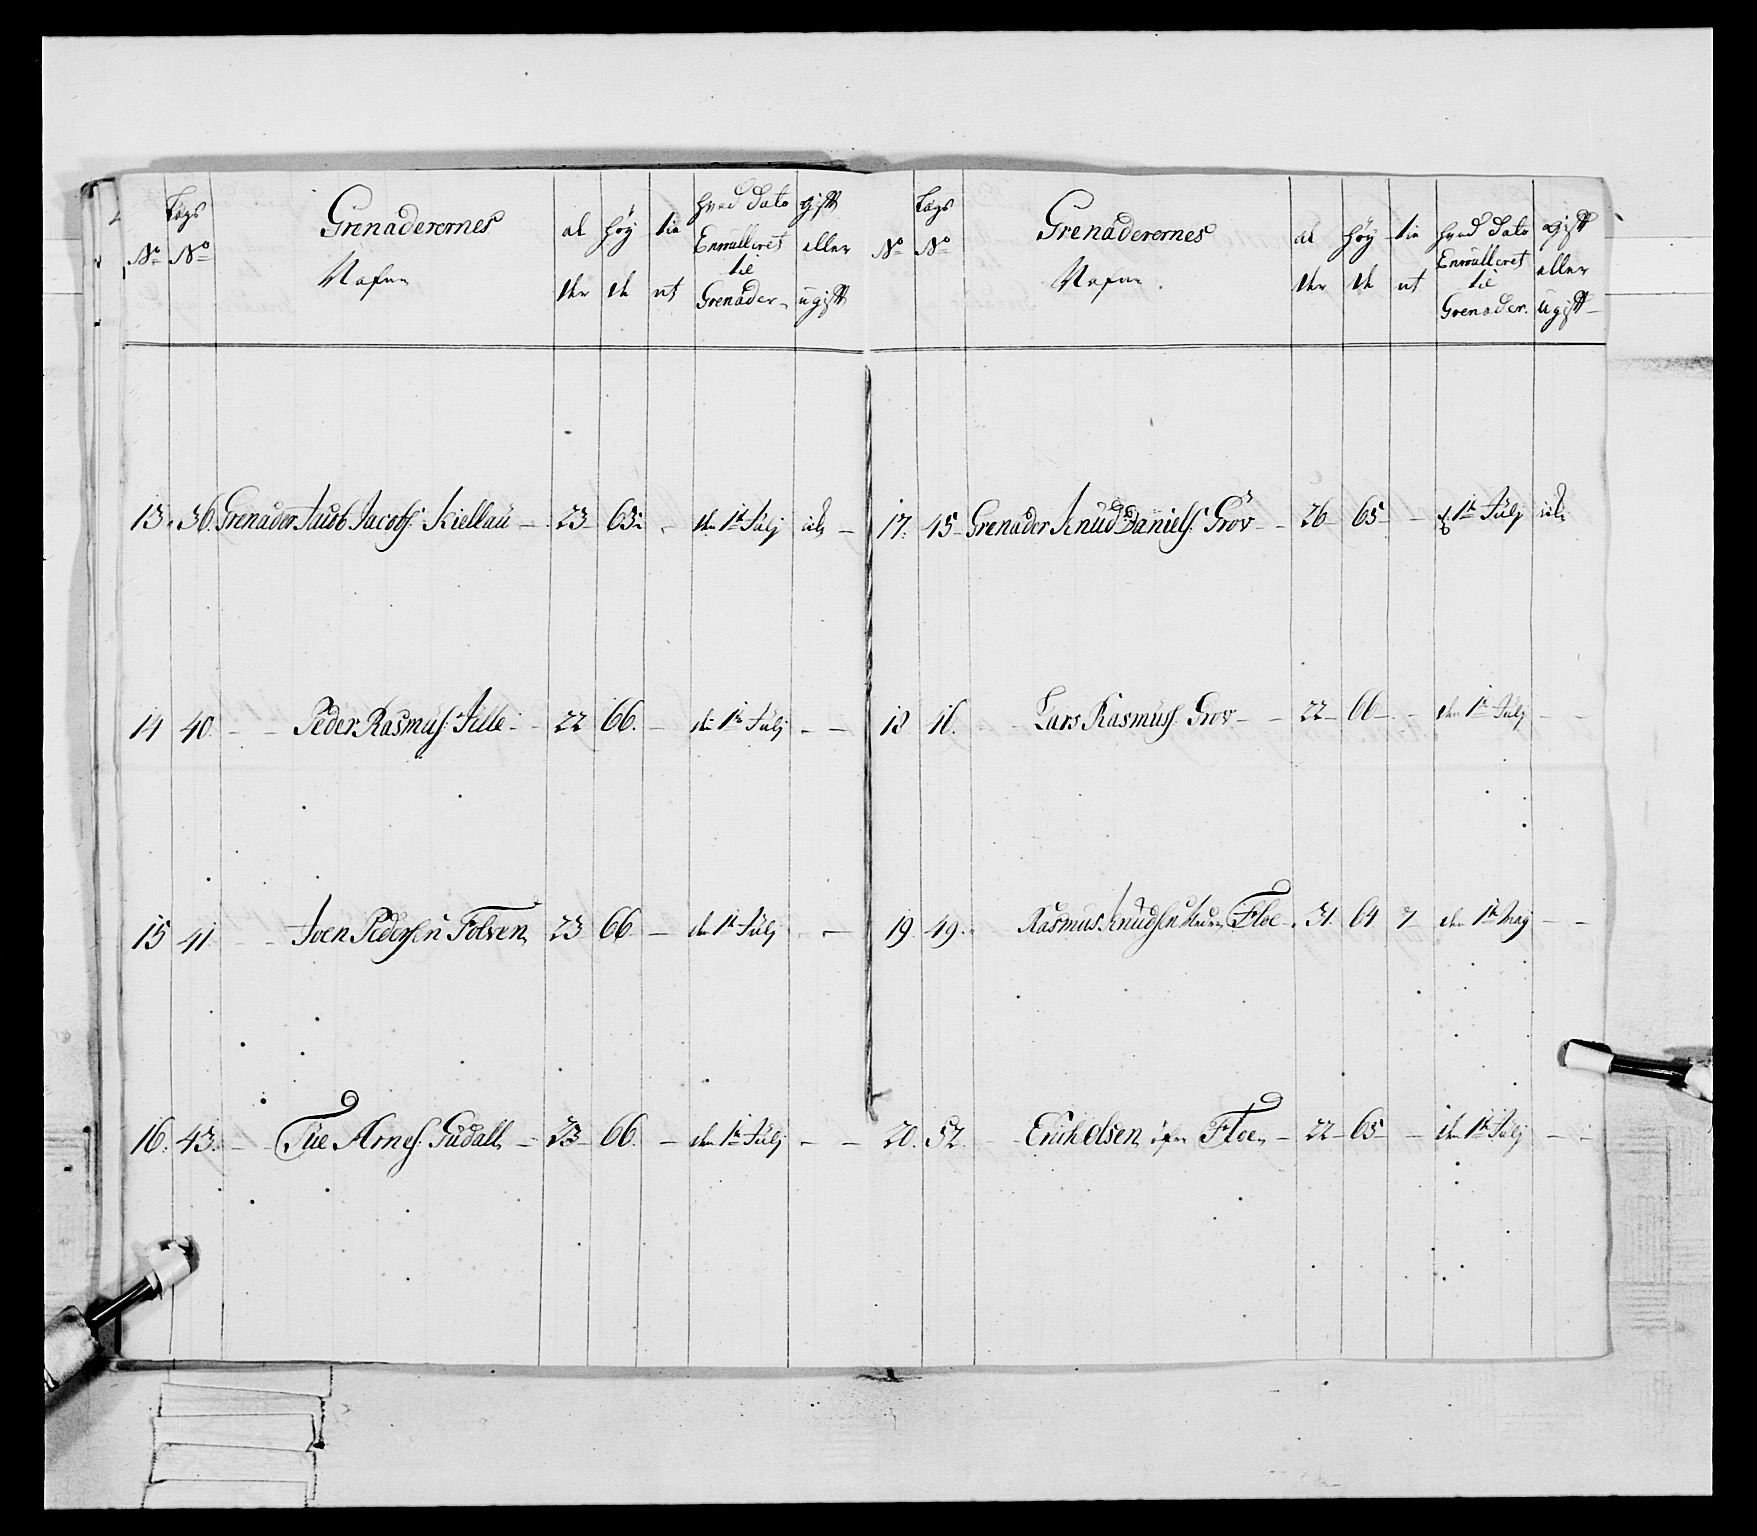 No Lægs No Grenaderernes Nafne al der høy de tie nt hvad Dato Enroulleret til Grenader gift eller ugift
13. 36. Grenader Jacob Jacobs: Kiellau 23 63½ den 1te Julj
14 40. Peder Rasmus: Hille 22 66. den 1te Julj
15 41. Iven Pedersen Folven 23 66 den 1te Julj
16. 43. Tüe Arnes: Gudall 23 66. den 1te Julj
No Lægs No Grenaderernes Nafne al der høy de tie nt hvad Dato Enroulleret til Grenader. gift eller ugift
17. 45 Grenader Knud Daniels: Grov 26 65 1te Julj
18 46. Lars Rasmuss: Grov 22 66 den 1te Julj
19. 49. Rasmus Knudsen Floe 31. 64 7 den 1te May
20. 52. Erich Olsen Floe 22 65 den 1te Julj